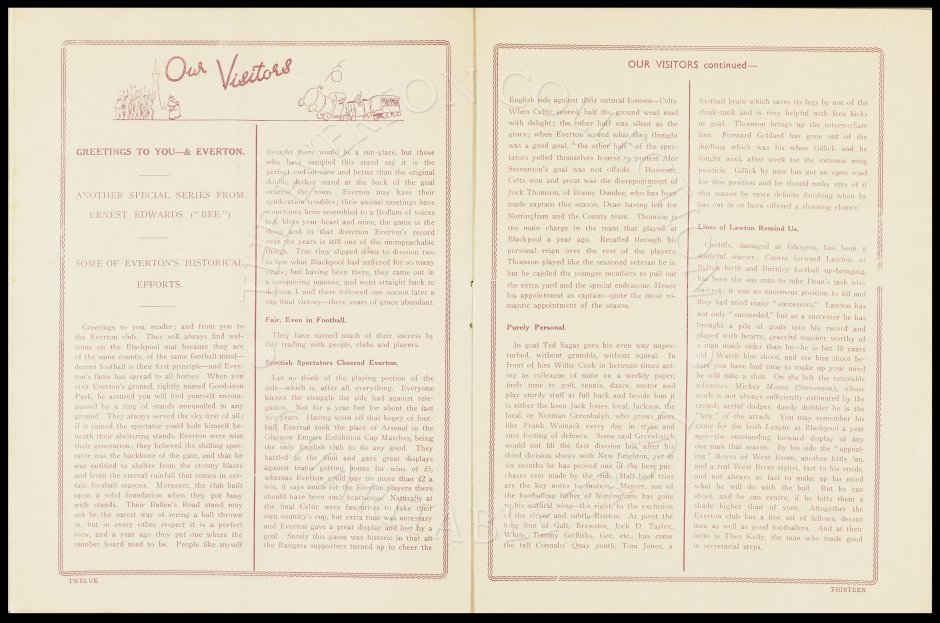 Our Visitors
GREETINGS TO YOU—& EVERTON.
ANOTHER SPECIAL SERIES FROM
ERNEST EDWARDS ("BEE")
SOME OF EVERTON'S HISTORICAL
EFFORTS.
Greetings to you, reader; and from you to
the Everton club. They will always find wel-
come on the Blackpool mat because they are
of the same county, of the same football mind—
decent football is their first principle—and Ever-
ton's fame has spread to all homes. When you
visit Everton's ground, rightly named Good-ison
Park, be assured you will find yourself encom-
passed by a ring of stands unequalled in any
ground. They always served the sky first of all;
if it rained the spectator could hide himself be-
neath their sheltering stands. Everton were wise
their generation; they believed the shilling spec-
tator was the backbone of the gate, and that he
was entitled to shelter from the stormy blasts
and from the eternal rainfall that comes in cer-
tain football seasons. Moreover, the club built
upon a solid foundation when they got busy
with stands. Their Bullen's Road stand may
not be the surest way of seeing a ball thrown
in, but in every other respect it is a perfect
view, and a year ago they put one where the
number board used to be. People like myself
thought there would be a sun-glare, but those
who have sampled this stand say it is the
perfect end-on-view and better than the original
double decker stand at the back of the goal
nearest the town. Everton may have their
syndication troubles; their annual meetings have
sometimes been resembled to a Bedlam of voices
but, bless your heart and mine, the game is the
thing and in that direction Everton's record
over the years is still one of the unimpeachable
things. True they slipped down to division two
to test what Blackpool had suffered for so many
years; but having been there, they came out in
a conquering manner, and went straight back to
division 1 and there followed one season later a
cup final victory—three years of grace abundant.
Fair, Even in Football.
They have earned much of their success by
fair trading with people, clubs and players.
Scottish Spectators Cheered Everton.
Let us think of the playing portion of the
side—which is, after all, everything. Everyone
knows the struggle the side had against rele-
gation. Not for a year but for about the last
five years. Having worn off that bogey of foot-
ball, Everton took the place of Arsenal in the
Glasgow Empire Exhibition Cup Matches, being
the only English club to do any good. They
battled to the final and gave great displays
against teams getting bonus for wins of £5,
whereas Everton could pay no more than £2 a
win, it says much for the Everton players there
should have been such heartiness. Naturally at
the final Celtic were favourites to take their
own country's cup, but extra time was necessary
and Everton gave a great display and lost by a
goal. Surely this game was historic in that all
the Rangers supporters turned up to cheer the
TWELVE
OUR VISITORS continued—
English side against their natural foemen—Celts
When Celtic scored, half the ground went mad
with delight; the other half was silent as the
grace; when Everton scored what they thought
was a good goal, "the other half" of the spec-
tators yelled themselves hoarse to protest Alec
Stevenson's goal was not offside. However,
Celts won and great was the disappointment of
Jock Thomson, of Bonny Dundee, who has been
made captain this season, Dean having left for
Nottingham and the County team. Thomson is
the main charge in the team that played at
Blackpool a year ago. Recalled through his
personal reign over the rest of the players.
Thomson played like the seasoned veteran he is,
but he cajoled the younger members to pull out
the extra yard and the special endeavour. Hence
his appointment as captain—quite the most ro-
mantic appointment of the season.
Purely Personal.
In goal Ted Sagar goes his even way unper-
turbed, without grumble, without squeal. In
front of him Willie Cook in between times act-
ing as colleague of mine on a weekly paper,
finds time to golf, tennis, dance, motor and
play sturdy stuff at full back and beside him it
is either the keen Jack Jones, local, Jackson, the
local, or Norman Greenhalgh, who grows more
like Frank Womack every day in style and
sure footing of defence. Some said Greenhalgh
would not fill the first division bill after his
third division shows with New Brighton, yet in
six months he has proved one of the best pur-
chases ever made by the club. Half back trios
are the key notes to success. Mercer, son of
the footballing father of Nottingham, has gone
to his natural wing—the right, to the exclusion
of the clever and subtle Britton. At pivot the
long line of Galt, Brewster, Jock D. Taylor,
White, Tommy Griffiths, Gee, etc., has come
the tall Connahs' Quay youth, Tom Jones, a
football brain which saves its legs by use of the
think-tank and is very helpful with free kicks
at goal. Thomson brings up the intermediate
line. Forward Geldard has gone out of the
duelling which was his when Gillick and he
fought week after week for the extreme wing
position. Gillick by now has got an open road
for this position and he should make sure of it
this season by more definite finishing when he
has cut in or been offered a shooting chance.
Lines of Lawton Remind Us.
Cunliffe, damaged at Glasgow, has been a
doubtful starter. Centre forward Lawton, of
Bolton birth and Burnley football up-bringing,
has been the one man to take Dean's task with
success; it was an enormous position to fill and
they had tried many "successors." Lawton has
not only "succeeded," but as a successor he has
brought a pile of goals into his record and
played with hearty, graceful manner worthy of
a man much older than he—he is but 18 years
old. Watch him shoot, and see him shoot be-
fore you have had time to make up your mind
he will take a shot. On the left the estimable
schemers, Mickey Mouse (Stevenson), whose
work is not always sufficiently estimated by the
crowd; artful dodger, dandy dribbler he is the
"key" of the attack. You may remember his
game for the Irish League at Blackpool a year
ago—the outstanding forward display of any
one man that season. By his side the "appeal-
ing" Boyes of West Brom, another little 'un,
and a real West Brom stylist, fast to his stride,
and not always so fast to make up his mind
what he will do with the ball. But he can
shoot, and he can centre, if he lofts them a
shade higher than yore. Altogether the
Everton club has a fine set of fellows, decent
men as well as good footballers. And at their
helm is Theo Kelly, the man who made good
in secretarial steps.
THIRTEEN